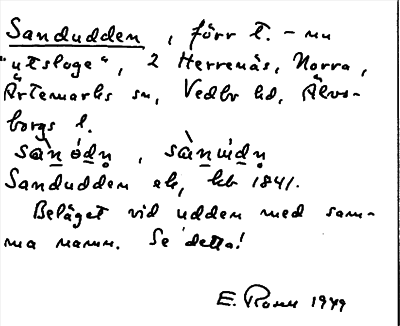 Sandudden, förr t. - nu
"utsloge", 2 Herrenäs, Norra,
Ärtemarks sn, Vedbo hd, Älvs-
borgs l.
sànódn, sànúdn
Sandudden ek, kb 1841.
Beläget vid udden med sam-
ma namn. Se detta!
E. Rosell 1949